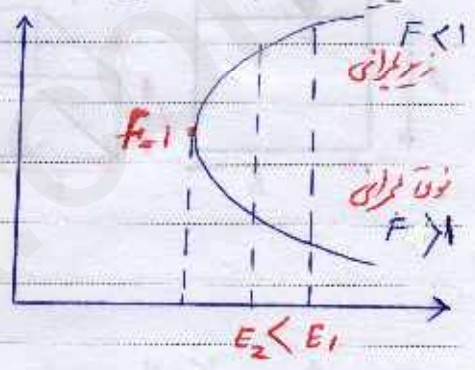 F < 1
زیربحرانی
F=1
فوق بحرانی
F > 1
E₂ < E₁